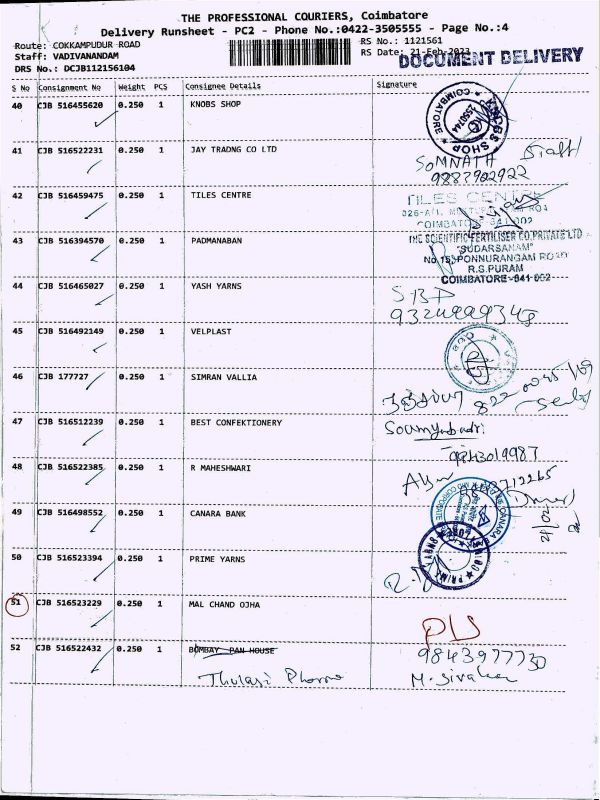 THE PROFESSIONAL COURIERS, Coimbatore
Delivery Runsheet - PC2 - Phone No.:0422-3505555 - Page No.:4
Route: COKKAMPUDUR ROAD
Staff: VADIVANANDAM
DRS No.: DCJB112156104
RS No.: 1121561
RS Date: 21-Feb-2023
DOCUMENT DELIVERY
S No Consignment No Weight PCS Consignee Details Signature
40 CJB 516455620 0.250 1 KNOBS SHOP
KNOBS SHOP * COIMBATORE * 2550744
41 CJB 516522231 0.250 1 JAY TRADNG CO LTD
SOMNATH Staff
9887922922
42 CJB 516459475 0.250 1 TILES CENTRE
TILES CENTRE
COIMBATORE-641 002
43 CJB 516394570 0.250 1 PADMANABAN
THE SCIENTIFIC FERTILISER CO.PRIVATE LTD
"SUDARSANAM"
No.15 PONNURANGAM ROAD
R.S.PURAM
COIMBATORE-641 002
44 CJB 516465027 0.250 1 YASH YARNS
SBD
45 CJB 516492149 0.250 1 VELPLAST
46 CJB 177727 0.250 1 SIMRAN VALLIA
47 CJB 516512239 0.250 1 BEST CONFEKTIONERY
9843019987
48 CJB 516522385 0.250 1 R MAHESHWARI
49 CJB 516498552 0.250 1 CANARA BANK
CANARA BANK
50 CJB 516523394 0.250 1 PRIME YARNS
PRIME YARNS
51 CJB 516523229 0.250 1 MAL CHAND OJHA
52 CJB 516522432 0.250 1 BOMBAY PAN HOUSE
9843977730
Thulasi Pharma M. Sivakumar